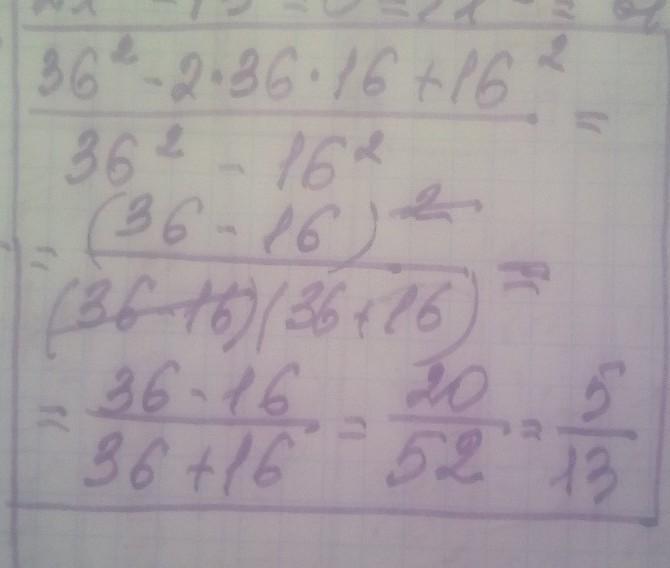 36² - 2·36·16 + 16²
=
36² - 16²
= (36 - 16)²
=
(36 - 16)(36 + 16)
= 36 - 16 = 20 = 5
36 + 16 52 13